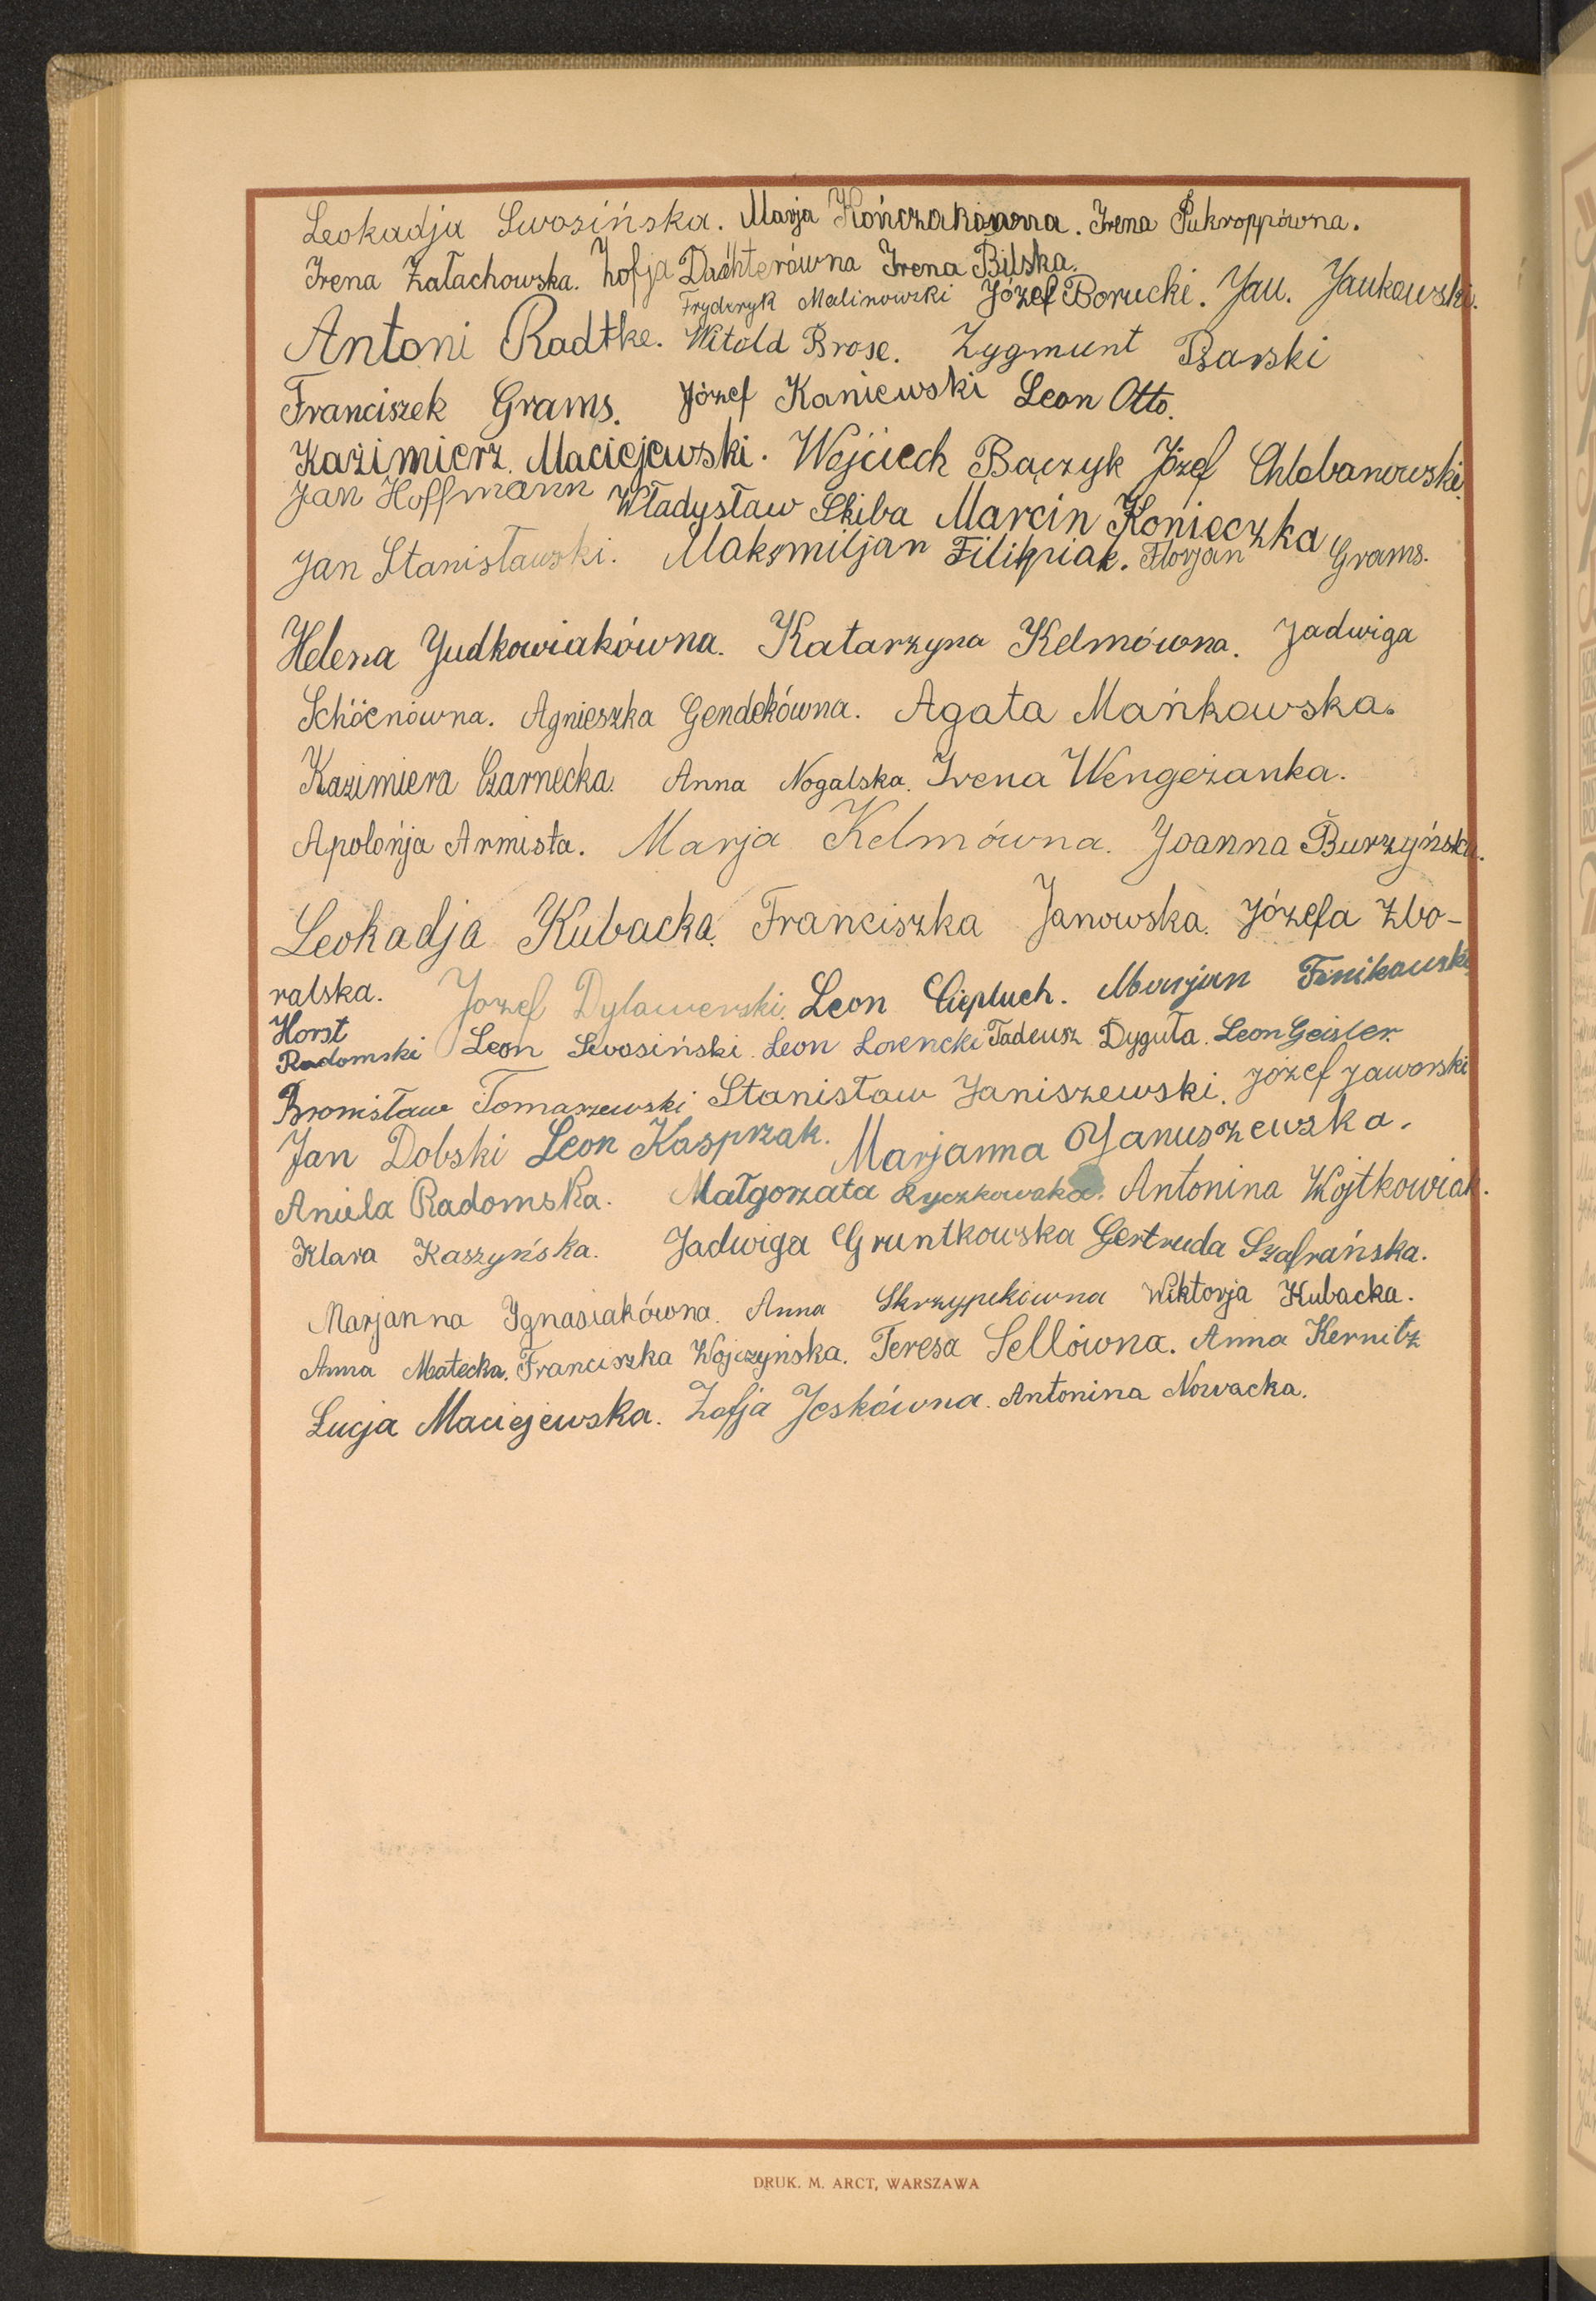 Leokadja Swosińska. Marja Kończakówna. Irena Pukroppówna.
Irena Załachowska. Zofja Dachterówna Irena Bilska.
Fryderyk Malinowski Józef Borucki. Jan. Jankowski.
Antoni Radtke. Witold Brose. Zygmunt Barski
Franciszek Grams. Józef Kaniewski Leon Otto.
Kazimierz Maciejewski. Wojciech Bączyk Józef Chlebanowski.
Jan Hoffmann Władysław Skiba Marcin Konieczka
Jan Stanisławski. Maksmiljan Filipiak. Florjan Grams.
Helena Judkowiakówna. Katarzyna Kelmówna. Jadwiga
Schöenówna. Agnieszka Gendekówna. Agata Mańkowska.
Kazimiera Czarnecka. Anna Nogalska. Irena Wengeżanka.
Apolonja Armista. Marja Kelmówna. Joanna Burzyńska.
Leokadja Kubacka. Franciszka Janowska. Józefa Zbo-
ralska. Józef Dylawerski. Leon Ciepluch. Marjan Finikowski
Horst
Radomski Leon Swosiński. Leon Lorencki Tadeusz Dyguła. Leon Geisler.
Bronisław Tomaszewski Stanisław Janiszewski. Józef Jaworski
Jan Dobski Leon Kasprzak. Marjanna Januszewska.
Aniela Radomska. Małgorzata Ryczkowska. Antonina Wojtkowiak.
Klara Kaszyńska. Jadwiga Gruntkowska Gertruda Szafrańska.
Marjanna Ignasiakówna. Anna Skrzypkówna Wiktorja Kubacka.
Anna Małecka. Franciszka Wojczyńska. Teresa Sellówna. Anna Kernitz
Łucja Maciejewska. Zofja Jeskówna. Antonina Nowacka.
DRUK. M. ARCT, WARSZAWA